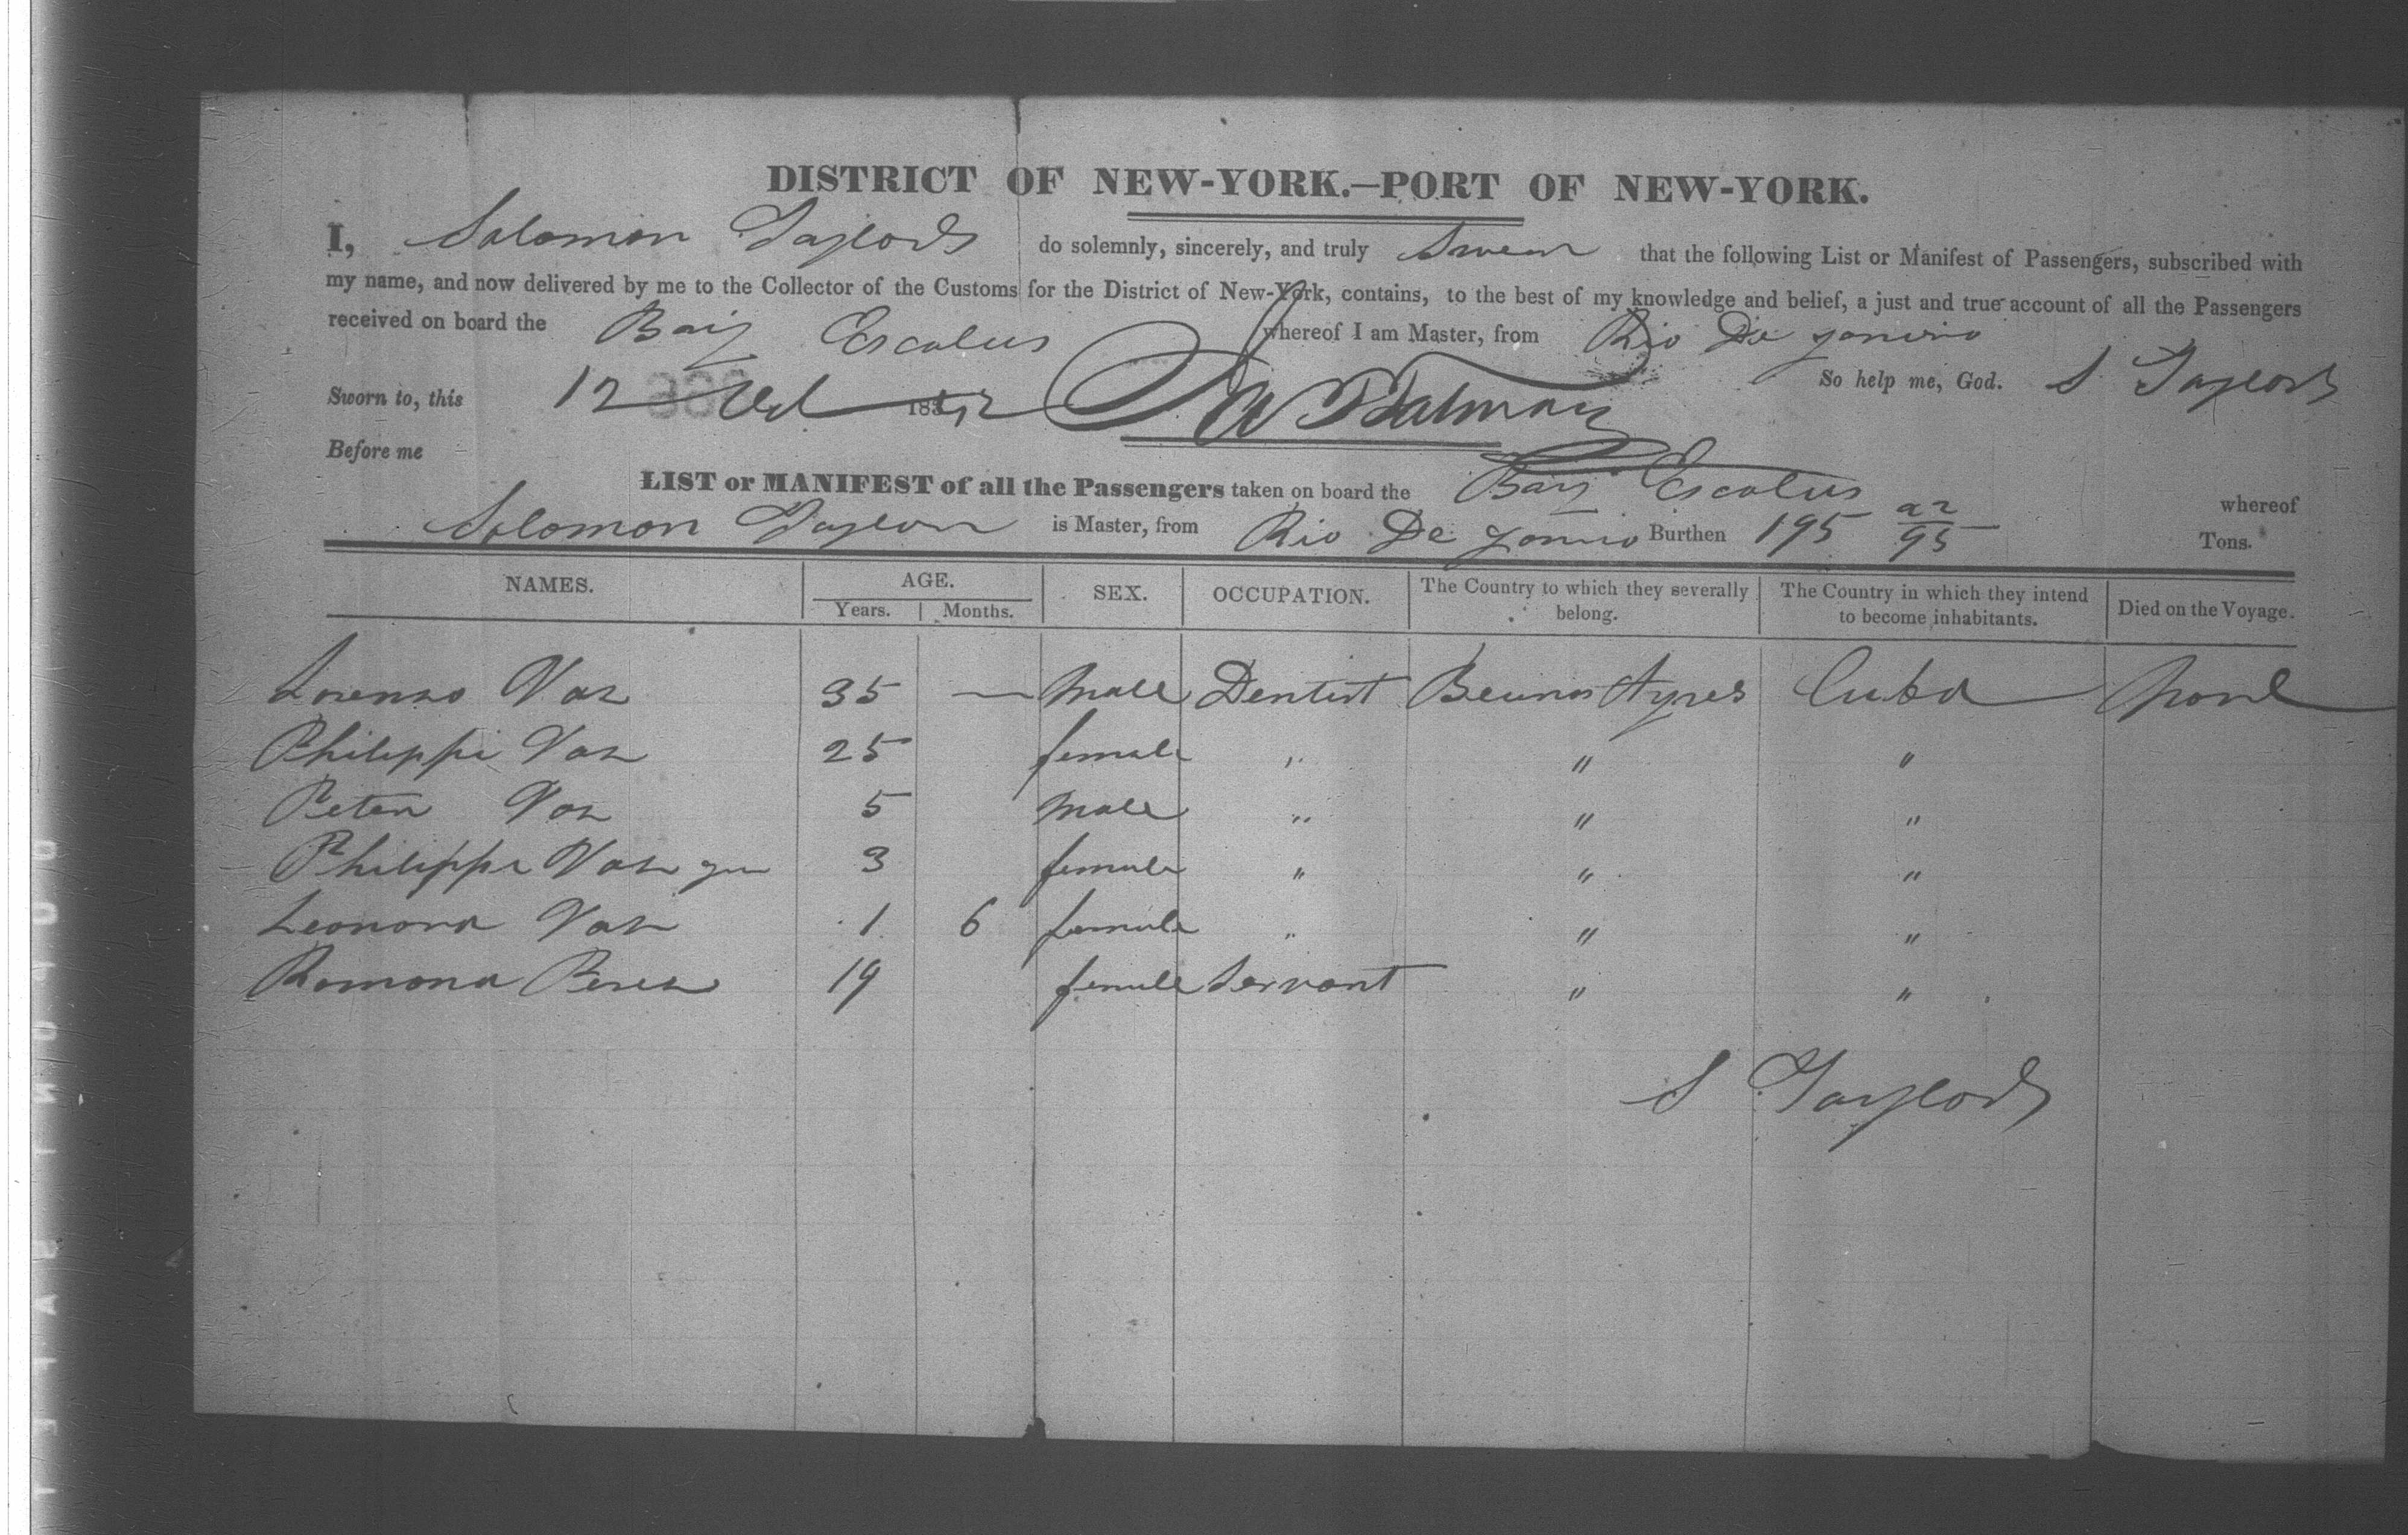 DISTRICT OF NEW-YORK.—PORT OF NEW-YORK.
I, Solomon Taylor do solemnly, sincerely, and truly Swear that the following List or Manifest of Passengers, subscribed with
my name, and now delivered by me to the Collector of the Customs for the District of New-York, contains, to the best of my knowledge and belief, a just and true account of all the Passengers
received on board the Brig Escalus whereof I am Master, from Rio De Janeiro
So help me, God. S Taylor
Sworn to, this 12 Oct 1842
Before me
LIST or MANIFEST of all the Passengers taken on board the Brig Escalus whereof
Solomon Taylor is Master, from Rio De Janeiro Burthen 195 22/95 Tons.
NAMES. AGE. SEX. OCCUPATION. The Country to which they severally belong. The Country in which they intend to become inhabitants. Died on the Voyage.
Years. Months.
Lorenzo Vaz 35 — Male Dentist Beunos Ayres Cuba None
Philippi Vaz 25 female " " "
Peter Vaz 5 Male " " "
Philippi Vaz jun 3 female " " "
Leonora Vaz 1 6 female " " "
Romona Perez 19 female Servant " "
S Taylor